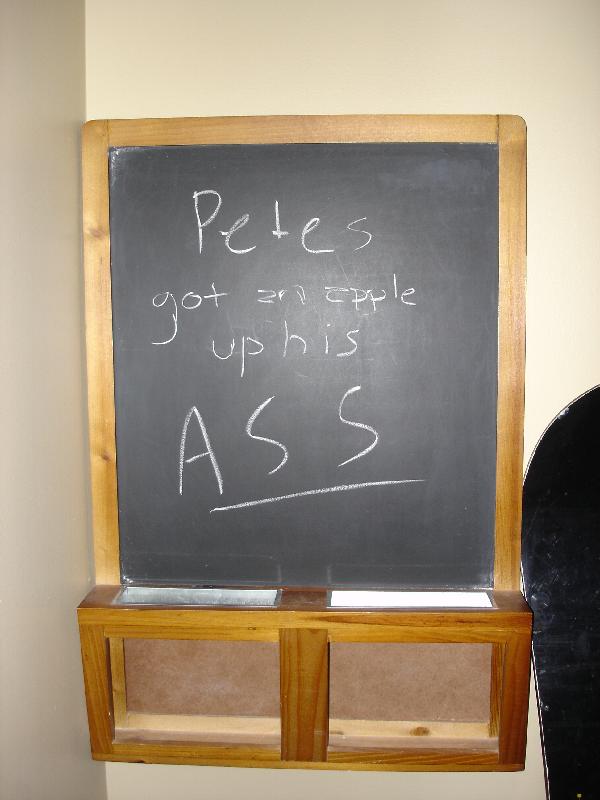 Petes
got an apple
up his
ASS